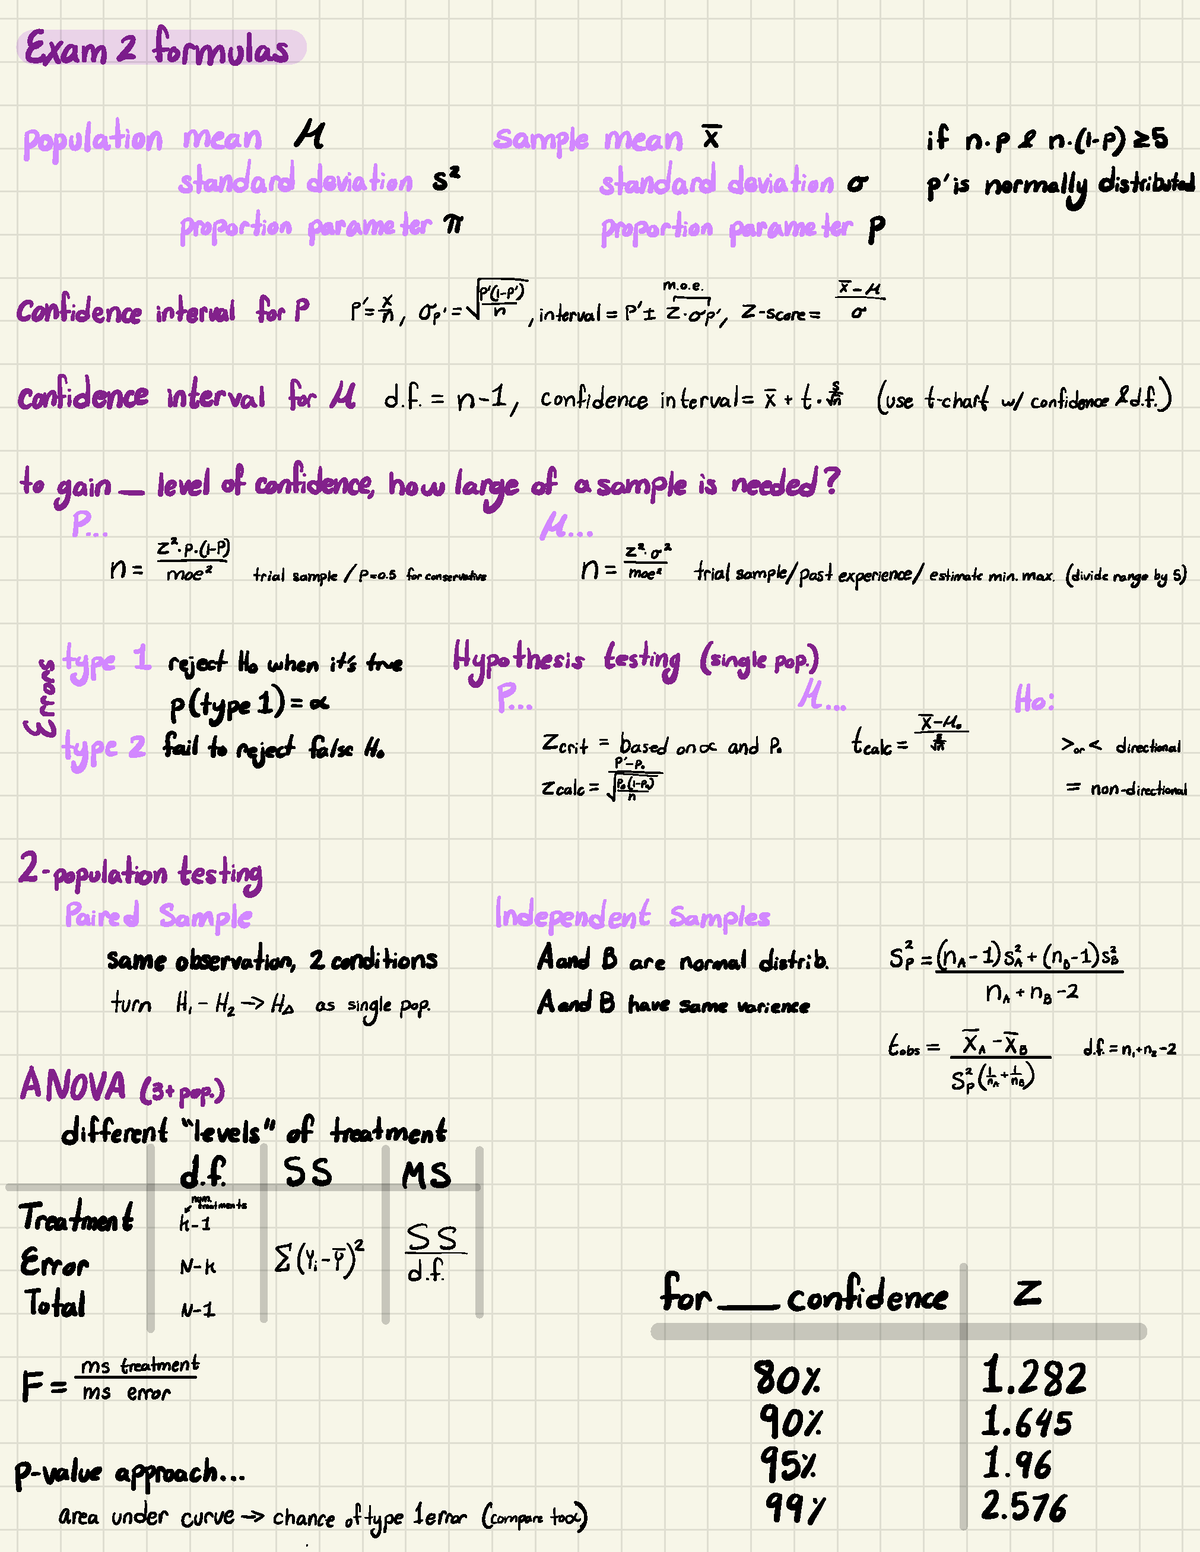 Exam 2 formulas
population mean μ
standard deviation s²
proportion parameter π
sample mean x̄
standard deviation σ
proportion parameter p
if n·p & n·(1-p) ≥5
p' is normally distributed
Confidence interval for P  p'= x/n, σp' = √(p'(1-p')/n), interval = p' ± z·σp', z-score = (x̄-μ)/σ
m.o.e.
confidence interval for μ  d.f. = n-1, confidence interval = x̄ + t · s/√n (use t-chart w/ confidence & d.f.)
to gain __ level of confidence, how large of a sample is needed?
P...
n = (z²·p·(1-p))/moe²  trial sample / p=0.5 for conservative
μ...
n = (z²·σ²)/moe²  trial sample/past experience/ estimate min. max. (divide range by 5)
Errors
type 1 reject H₀ when it's true
p(type 1) = α
type 2 fail to reject false H₀
Hypothesis testing (single pop.)
P...
Zcrit = based on α and P₀
Zcalc = (p'-p₀)/√(p₀(1-p₀)/n)
μ...
tcalc = (x̄-μ₀)/(s/√n)
Ho:
> or < directional
= non-directional
2-population testing
Paired Sample
same observation, 2 conditions
turn H₁ - H₂ → H∆ as single pop.
Independent Samples
A and B are normal distrib.
A and B have same varience
Sp² = ((nA-1)sA² + (nB-1)sB²)/(nA + nB -2)
tobs = (x̄A - x̄B)/(Sp²(1/nA + 1/nB))  d.f. = n₁+n₂-2
ANOVA (3+ pop.)
different "levels" of treatment
d.f. SS MS
num. treatments
Treatment k-1
Error N-k Σ(Yi-Ȳ)² SS/d.f.
Total N-1
F = ms treatment / ms error
p-value approach...
area under curve → chance of type 1 error (compare to α)
for ___ confidence Z
80% 1.282
90% 1.645
95% 1.96
99% 2.576